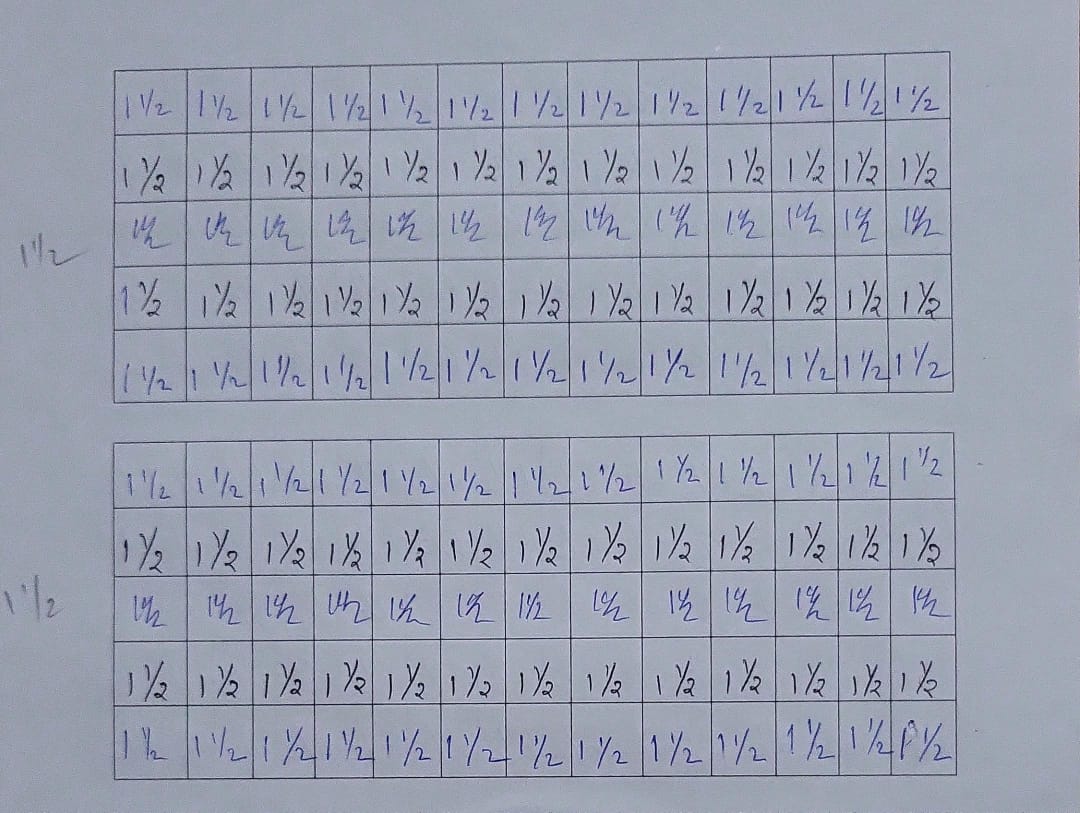 1 1/2 1 1/2 1 1/2 1 1/2 1 1/2 1 1/2 1 1/2 1 1/2 1 1/2 1 1/2 1 1/2 1 1/2 1 1/2
1 1/2 1 1/2 1 1/2 1 1/2 1 1/2 1 1/2 1 1/2 1 1/2 1 1/2 1 1/2 1 1/2 1 1/2 1 1/2
1 1/2 1 1/2 1 1/2 1 1/2 1 1/2 1 1/2 1 1/2 1 1/2 1 1/2 1 1/2 1 1/2 1 1/2 1 1/2
1 1/2
1 1/2 1 1/2 1 1/2 1 1/2 1 1/2 1 1/2 1 1/2 1 1/2 1 1/2 1 1/2 1 1/2 1 1/2 1 1/2
1 1/2 1 1/2 1 1/2 1 1/2 1 1/2 1 1/2 1 1/2 1 1/2 1 1/2 1 1/2 1 1/2 1 1/2 1 1/2
1 1/2 1 1/2 1 1/2 1 1/2 1 1/2 1 1/2 1 1/2 1 1/2 1 1/2 1 1/2 1 1/2 1 1/2 1 1/2
1 1/2 1 1/2 1 1/2 1 1/2 1 1/2 1 1/2 1 1/2 1 1/2 1 1/2 1 1/2 1 1/2 1 1/2 1 1/2
1 1/2
1 1/2 1 1/2 1 1/2 1 1/2 1 1/2 1 1/2 1 1/2 1 1/2 1 1/2 1 1/2 1 1/2 1 1/2 1 1/2
1 1/2 1 1/2 1 1/2 1 1/2 1 1/2 1 1/2 1 1/2 1 1/2 1 1/2 1 1/2 1 1/2 1 1/2 1 1/2
1 1/2 1 1/2 1 1/2 1 1/2 1 1/2 1 1/2 1 1/2 1 1/2 1 1/2 1 1/2 1 1/2 1 1/2 1 1/2